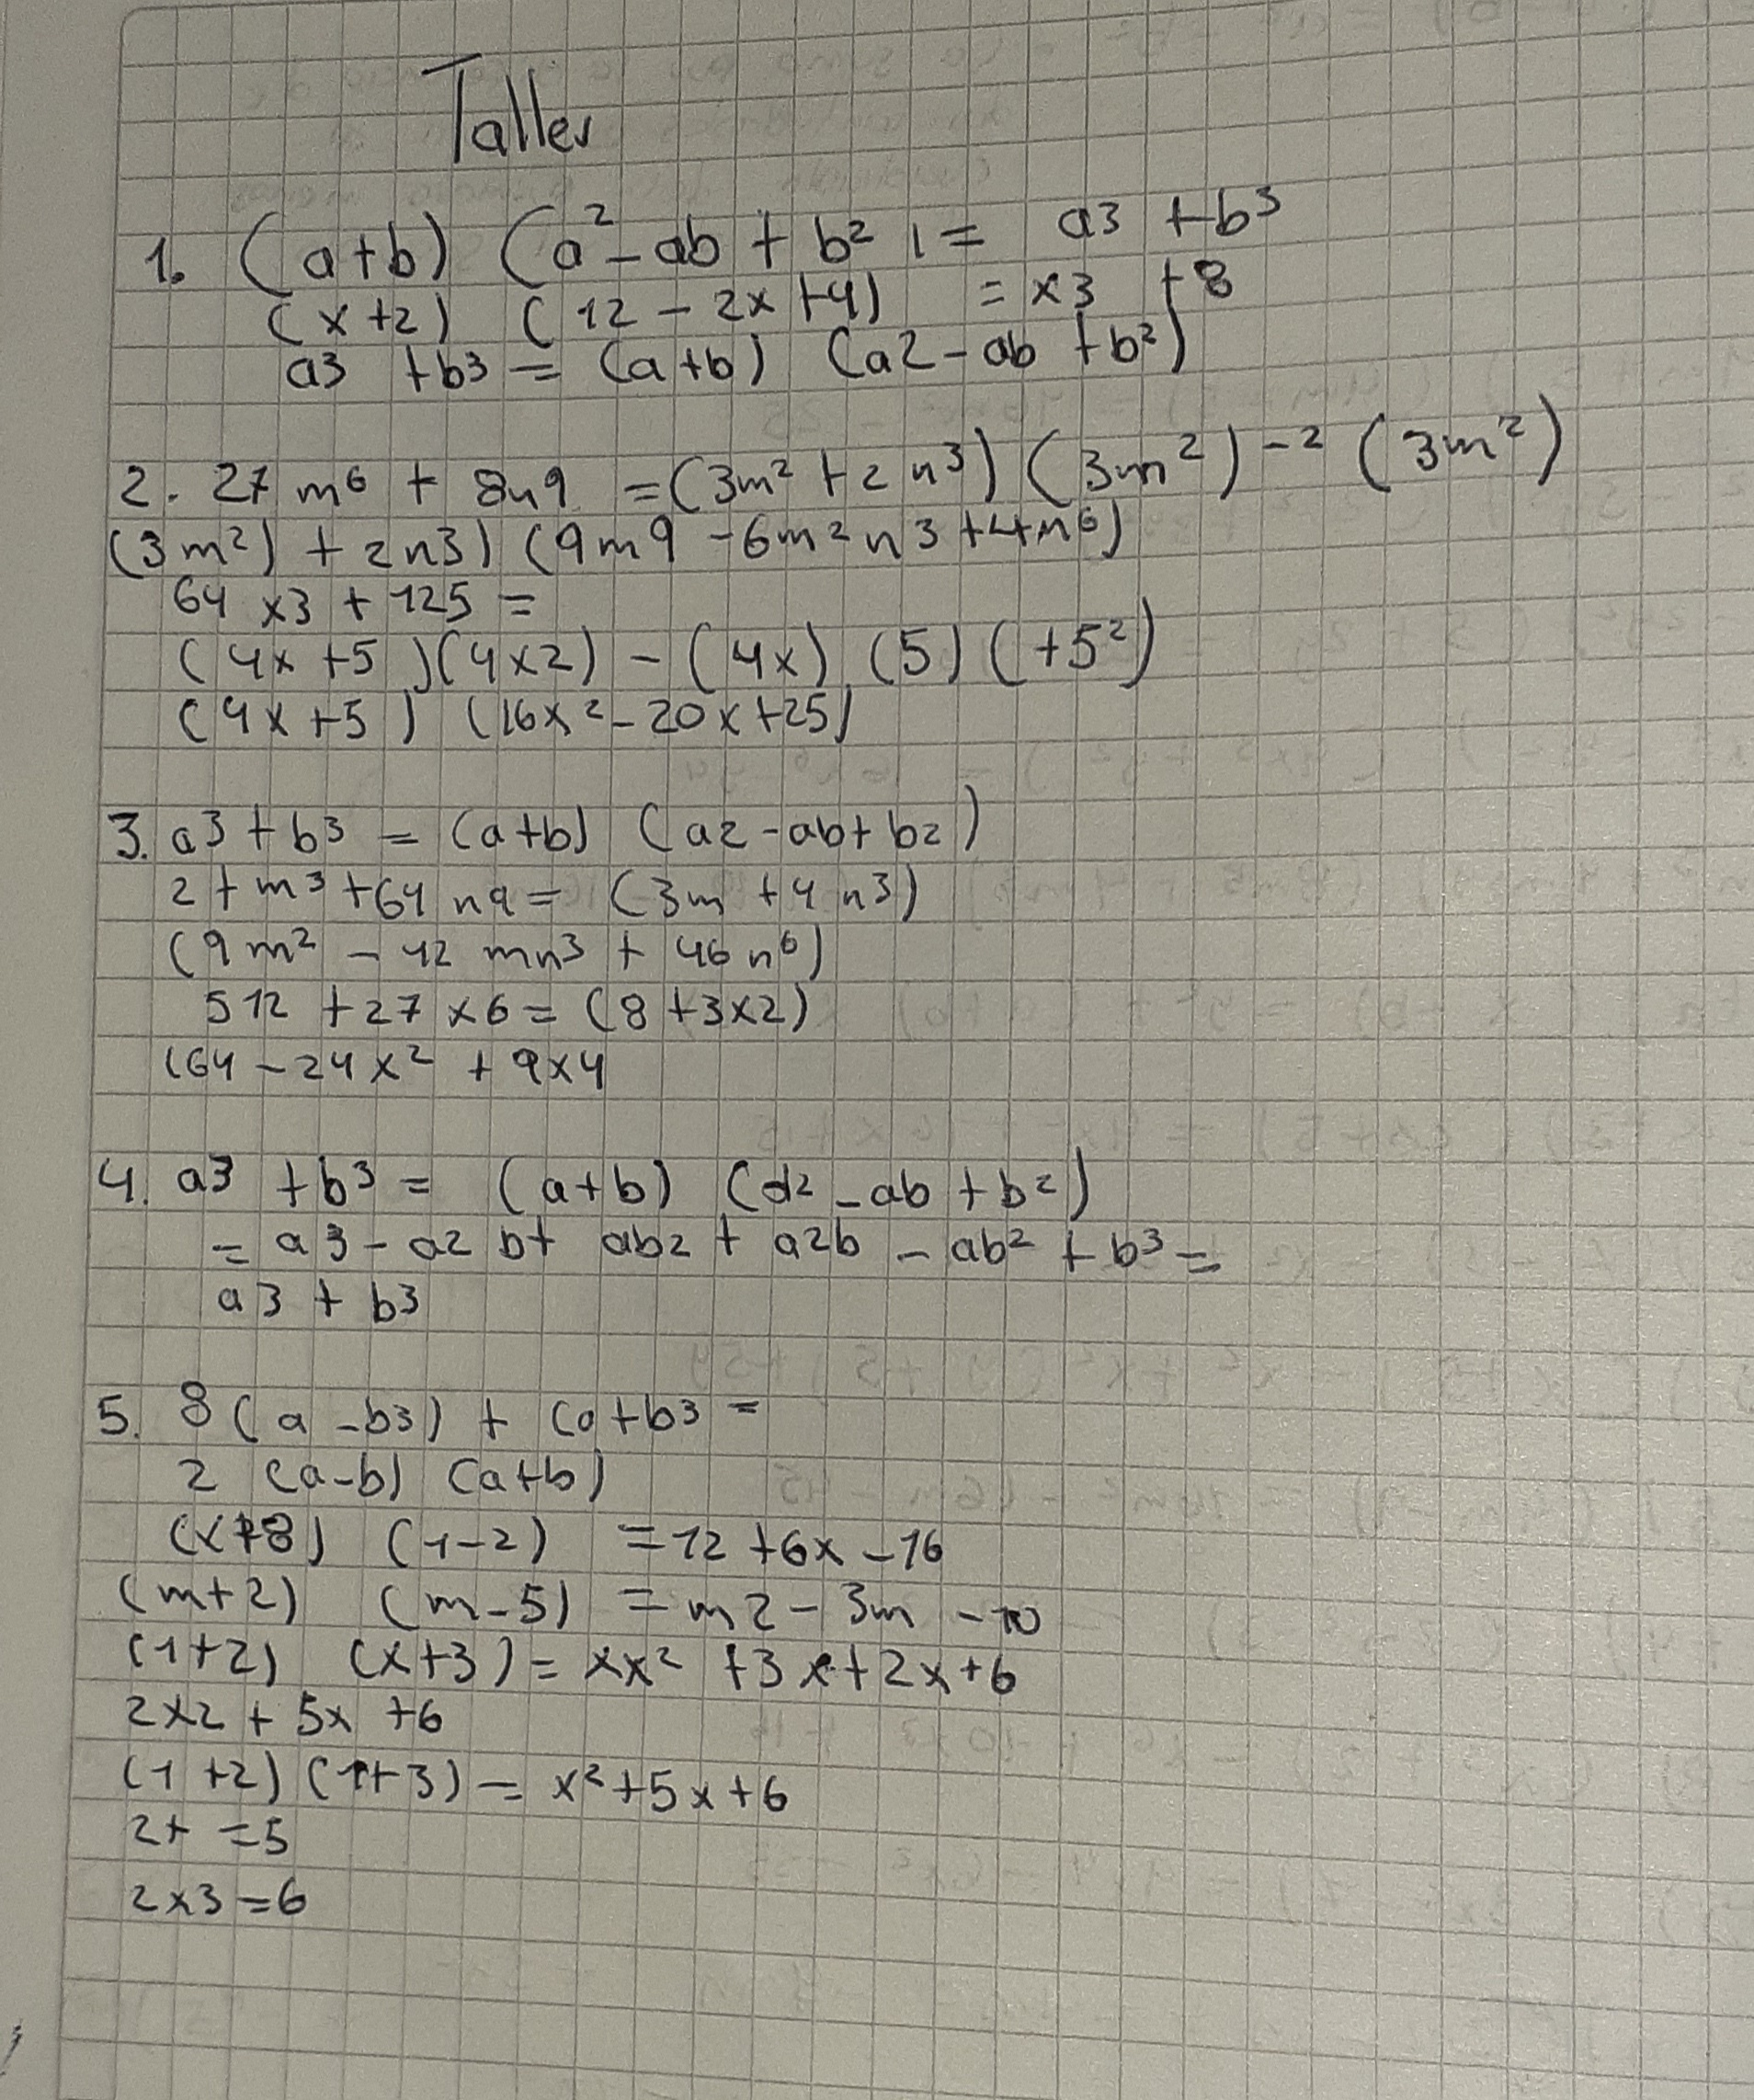 Taller
1. (a+b) (a² - ab + b² 1 = a3 + b³
(x+2) (12 - 2x +4) = x3 +8
a3 +b3 = (a+b) (a2 - ab + b²)
2. 27 m⁶ + 8n9 = (3m² + 2 n³) (3m²) -² (3m²)
(3m²) + 2n3) (9m9 - 6m² n3 + 4n⁶)
64 x3 + 125 =
(4x +5 ) (4x2) - (4x) (5) (+5²)
(4x +5 ) (16x² - 20x+25)
3. a3 + b³ = (a+b) (a2 - ab + b2)
2+ m³ +64 n9 = (3m + 4 n3)
(9m² - 12 mn³ + 46 n⁶)
512 +27 x6 = (8 +3x2)
(64 - 24 x² + 9x4
4. a3 +b³ = (a+b) (a2 - ab + b²)
= a3 - a2 b+ ab2 + a2b - ab² + b³ =
a3 + b3
5. 8 (a - b3) + (a+b3 =
2 (a-b) (a+b)
(x+8) (1-2) = 12 +6x -16
(m+2) (m-5) = m2 - 3m -10
(1+2) (x+3) = xx² +3x+2x+6
2x2 + 5x +6
(1 +2) (1+3) = x²+5x+6
2+ =5
2x3=6